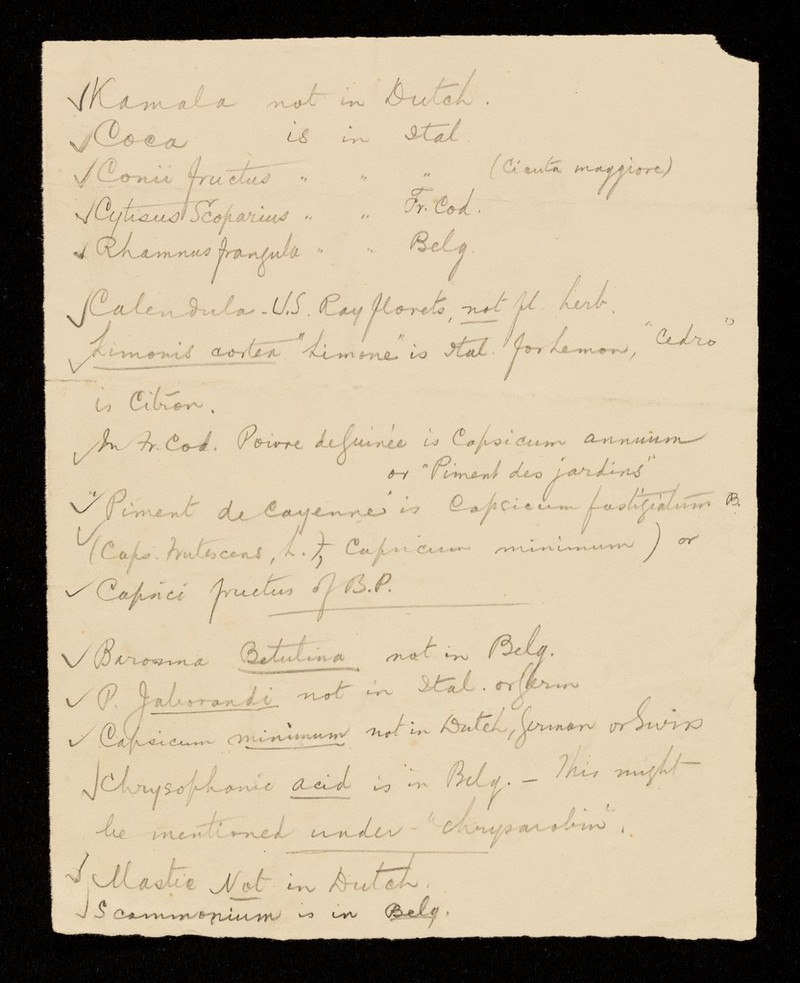 √ Kamala not in Dutch.
√ Coca is in Ital
√ Conii fructus " " " (Cicuta maggiore)
√ Cytisus Scoparius " " Fr. Cod.
√ Rhamnus frangula " " Belg.
√ Calendula - U.S. Ray florets, not fl. herb.
√ Limonis cortex "Limone" is Ital. for Lemon, "Cedro"
is Citron.
√ In Fr. Cod. Poivre de Guinée is Capsicum annuum
or "Piment des jardins"
√ "Piment de Cayenne" is Capsicum fastigiatum B.
√ (Caps. frutescens, L. & Capsicum minimum) or
√ Capsici fructus of B.P.
√ Barosma Betulina not in Belg.
√ P. Jaborandi not in Ital. or Germ
√ Capsicum minimum not in Dutch, German or Swiss
√ Chrysophanic acid is in Belg. – This might
be mentioned under - "chrysarobin".
√ Mastic Not in Dutch.
√ Scammonium is in Belg.